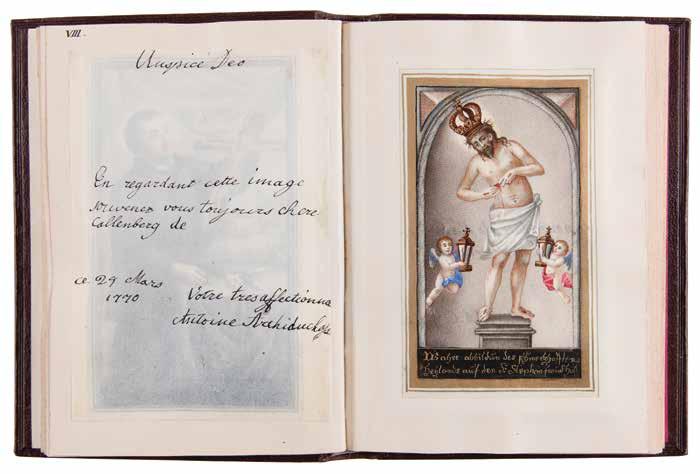 VIII.
Auspice Deo
En regardant cette image
souvenez vous toujours chere
Callenberg de
ce 29 Mars
1770
Votre tres affectionna
Antoine Archiduchesse
Wahre abbildun des
Heylands auf den St Stephans freid hof